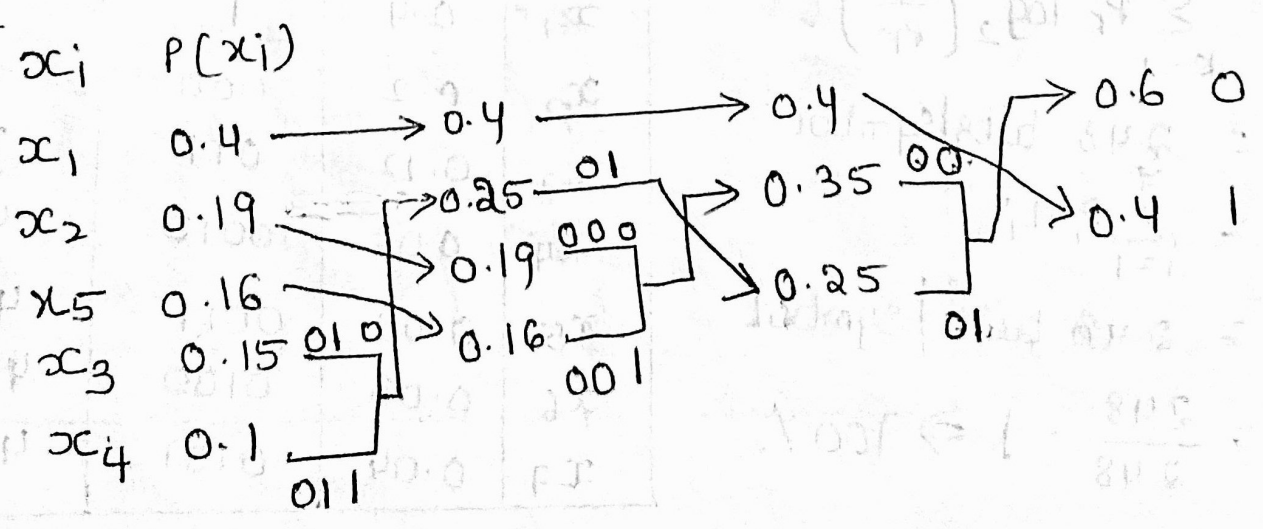 xi P(xi)
x1 0.4 → 0.4 → 0.4 → 0.6 0
x2 0.19 → 0.25 01 → 0.35 00 → 0.4 1
x5 0.16 → 0.19 000 → 0.25 01
x3 0.15 010 → 0.16 001
x4 0.1 011